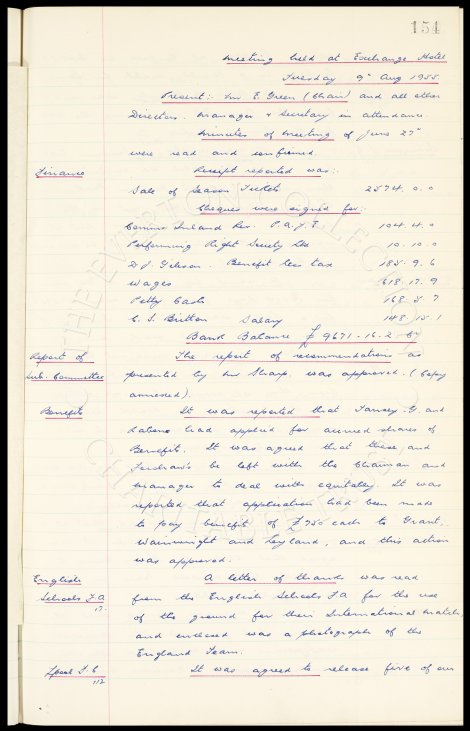 154
Meeting held at Exchange Hotel
Tuesday 9th Aug 1955.
Present:- Mr E. Green (Chair) and all other
Directors. Manager & Secretary in attendance.
Minutes of Meeting of June 27th
were read and confirmed.
Finance
Receipt reported was:-
Sale of Season Tickets 2574. 0. 0
Cheques were signed for:-
Comms Inland Rev. P.A.Y.E. 104. 4. 0
Performing Right Society Ltd 10. 10. 0
Benefit less tax 185. 9. 6
Wages 618. 17. 9
Petty Cash 168. 5. 7
C. S. Britton Salary 148. 15. 1
Bank Balance £ 9671. 16. 2.
Report of
Sub. Committee
The report of recommendations as
presented by Mr Sharp, was approved. (Copy
annexed).
Benefits
It was reported that Tansey. G. and
had applied for accrued shares of
Benefits. It was agreed that these, and
be left with the Chairman and
Manager to deal with equitably. It was
reported that application had been made
to pay benefit of £750 each to Grant,
Wainwright and Leyland, and this action
was approved.
English
Schools F.A
17.
A letter of thanks was read
from the English Schools F.A for the use
of the ground for their International match
and enclosed was a photograph of the
England Team.
Lpool F.C
112
It was agreed to release five of our
THE EVERTON COLLECTION
CHARITABLE